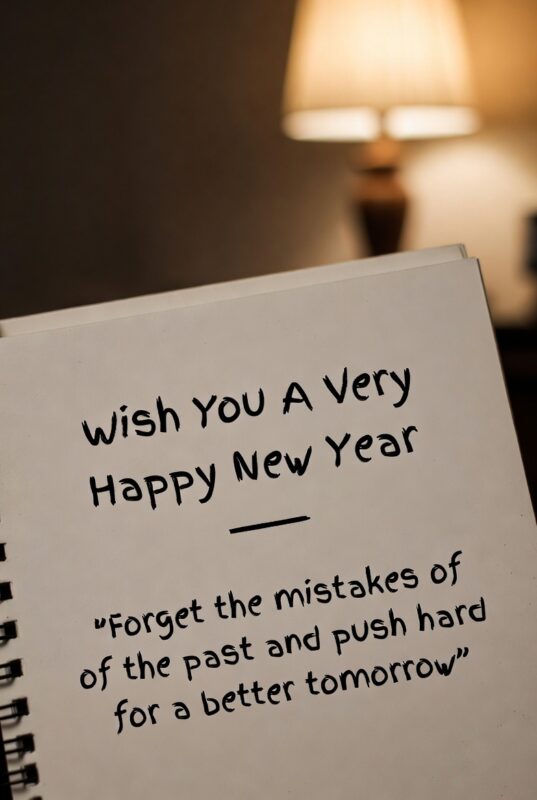 Wish You A Very
Happy New Year
"Forget the mistakes of
of the past and push hard
for a better tomorrow"